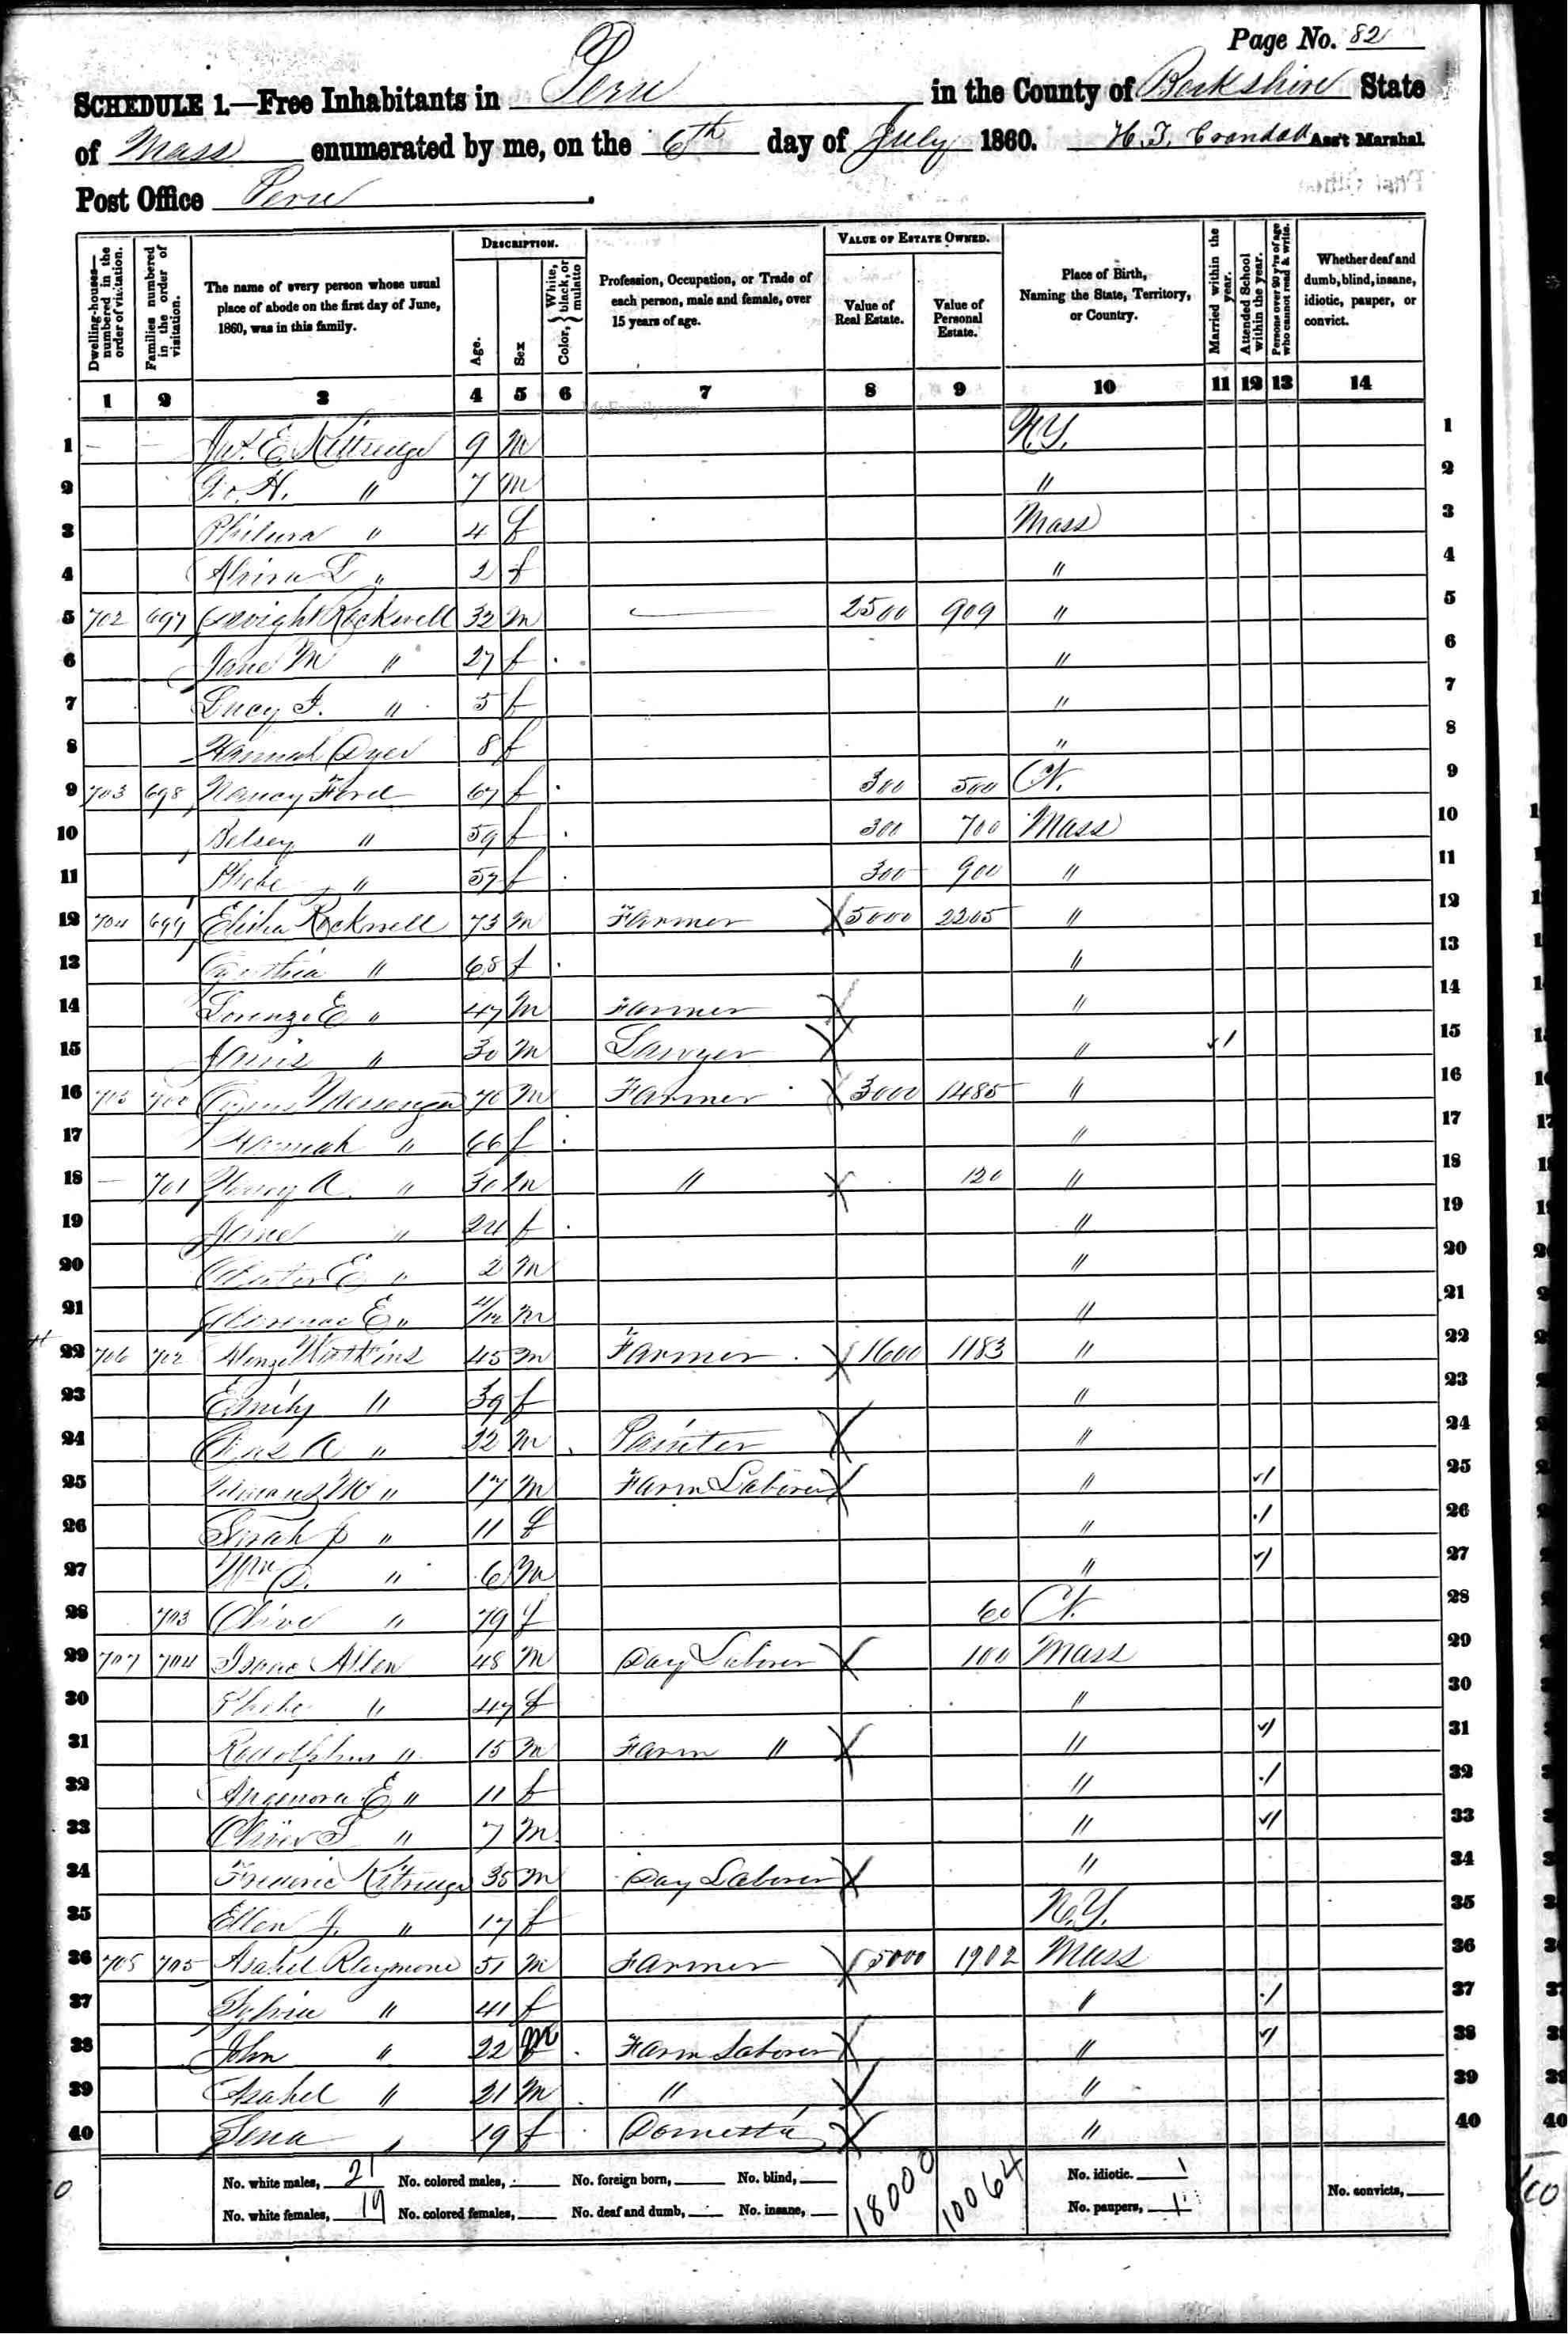 Page No. 82
SCHEDULE 1.—Free Inhabitants in Peru in the County of Berkshire State
of Mass enumerated by me, on the 6th day of July 1860. H. T. Crandall Ass't Marshal
Post Office Peru.
Dwelling-houses—numbered in the order of visitation. Families numbered in the order of visitation. The name of every person whose usual place of abode on the first day of June, 1860, was in this family. DESCRIPTION. Age. Sex Color, White, black, or mulatto Profession, Occupation, or Trade of each person, male and female, over 15 years of age. VALUE OF ESTATE OWNED. Value of Real Estate. Value of Personal Estate. Place of Birth, Naming the State, Territory, or Country. Married within the year. Attended School within the year. Persons over 20 y'rs of age who cannot read & write. Whether deaf and dumb, blind, insane, idiotic, pauper, or convict.
1 2 3 4 5 6 7 8 9 10 11 12 13 14
1 — — E. Kittredge 9 m N.Y. 1
2 H. " 7 m " 2
3 Philura " 4 f Mass 3
4 L " 2 f " 4
5 702 697 Dwight Rockwell 32 m — 2500 909 " 5
6 Jane M " 27 f " 6
7 Lucy " 5 f " 7
8 Hannah Dyer 8 f " 8
9 703 698 Nancy Ford 67 f 300 500 Ct. 9
10 Betsey " 59 f 300 700 Mass 10
11 Phebe " 57 f 300 900 " 11
12 704 699 Elisha Rockwell 73 m Farmer 5000 2205 " 12
13 Cynthia " 68 f " 13
14 Lorenzo E " 47 m Farmer " 14
15 " 30 m Lawyer " / 15
16 705 700 Cyrus Messenger 70 m Farmer 3000 1485 " 16
17 Hannah " 66 f " 17
18 — 701 Henry A. " 30 m " 120 " 18
19 Jane " 24 f " 19
20 E " 2 m " 20
21 Clarence E " 4/12 m " 21
22 706 702 Alonzo Watkins 45 m Farmer 1600 1183 " 22
23 Emily " 39 f " 23
24 A " 22 m Painter " 24
25 M " 17 m Farm Laborer " / 25
26 Sarah J " 11 f " / 26
27 Wm D. " 6 m " / 27
28 703 Olive " 79 f 60 Ct. 28
29 707 704 Isaac Allen 48 m Day Laborer 100 Mass 29
30 Phebe " 47 f " 30
31 Rodolphus " 15 m Farm " " / 31
32 Angenora E " 11 f " / 32
33 Oliver S " 7 m " / 33
34 Frederic Kittredge 35 m Day Laborer " 34
35 Ellen J. " 17 f N.Y. 35
36 708 705 Asahel Raymond 51 m Farmer 5000 1902 Mass 36
37 Sylvia " 41 f " / 37
38 John " 22 m Farm Laborer " / 38
39 Asahel " 21 m " " 39
40 Lena " 19 f Domestic " 40
No. white males, 21 No. colored males, No. foreign born, No. blind, 18000 10064 No. idiotic. 1 No. convicts,
No. white females, 19 No. colored females, No. deaf and dumb, No. insane, No. paupers, 1